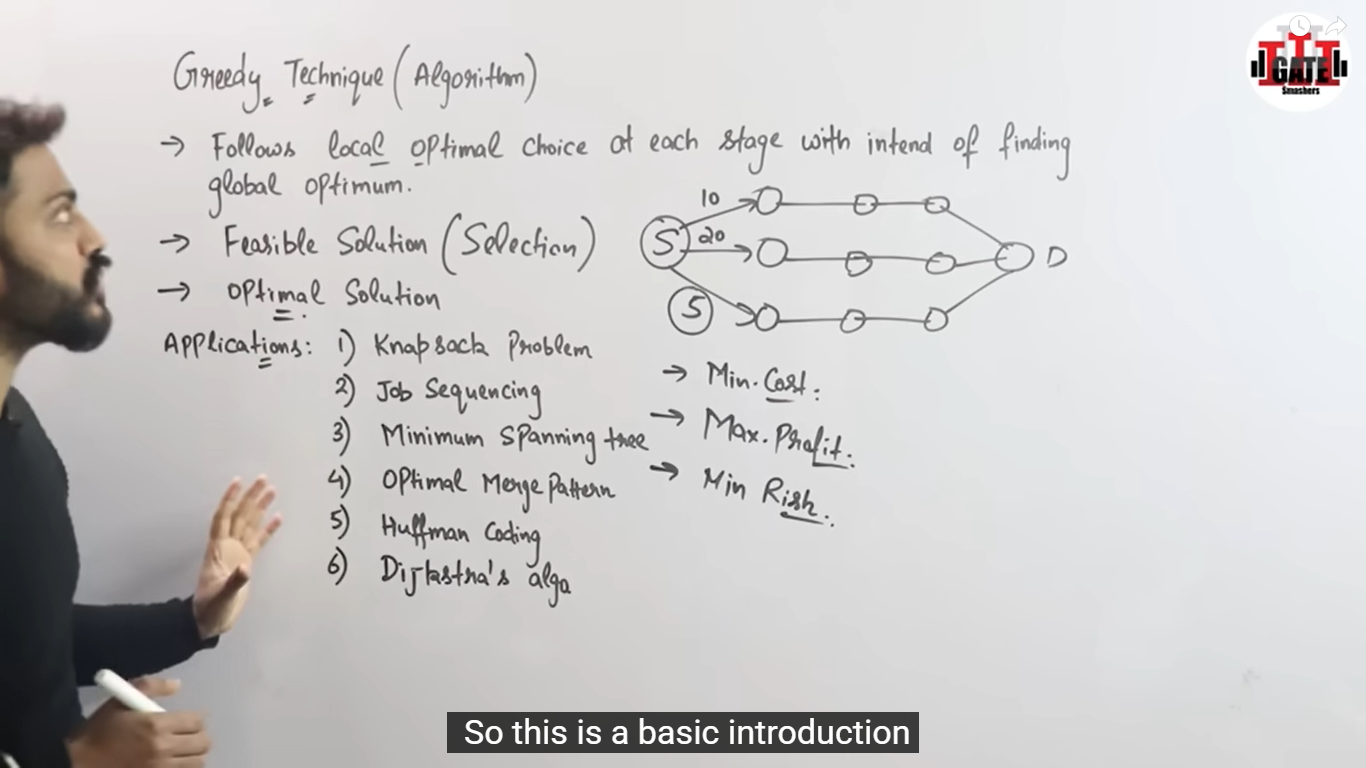 Greedy Technique (Algorithm)
→ Follows local optimal choice at each stage with intend of finding
global optimum.
→ Feasible Solution (Selection)
→ Optimal Solution
Applications: 1) Knapsack Problem
2) Job Sequencing
3) Minimum Spanning tree
4) Optimal Merge Pattern
5) Huffman Coding
6) Dijkstra's algo
S
10
20
5
D
→ Min. Cost.
→ Max. Profit.
→ Min Risk.
GATE
Smashers
So this is a basic introduction